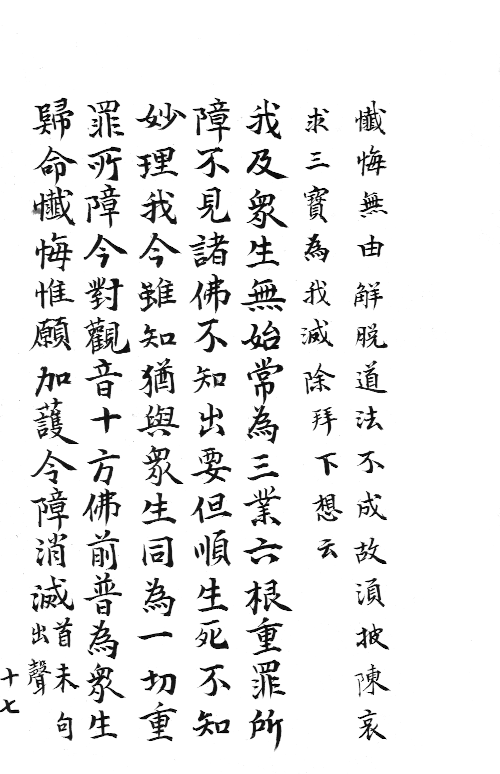 懺悔無由解脫道法不成故須披陳哀
求三寶為我滅除拜下想云
我及眾生無始常為三業六根重罪所
障不見諸佛不知出要但順生死不知
妙理我今雖知猶與眾生同為一切重
罪所障今對觀音十方佛前普為眾生
歸命懺悔惟願加護令障消滅首末句出聲
十七